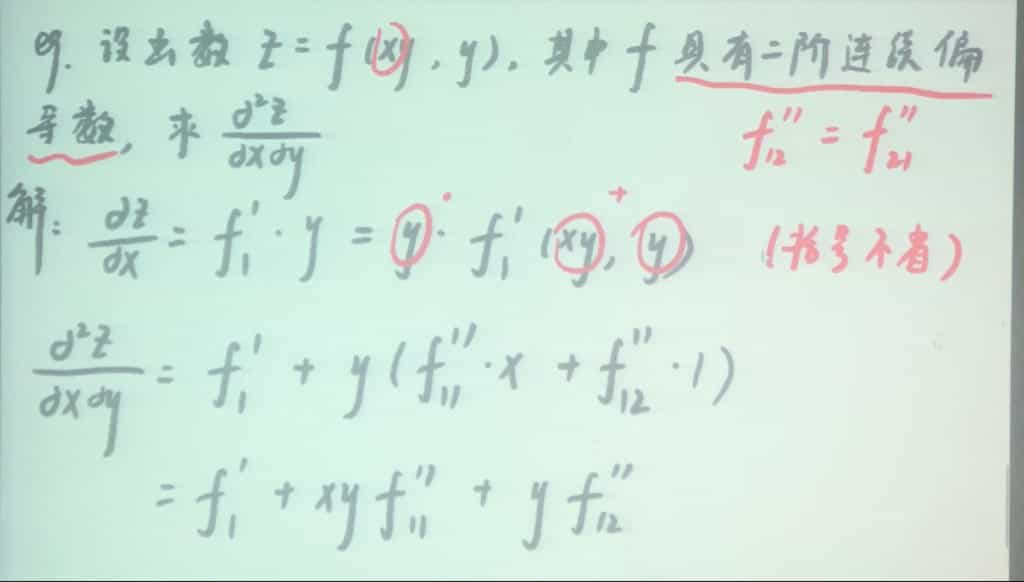 eg. 设函数 z = f(xy, y), 其中 f 具有二阶连续偏
导数, 求 ∂²z/∂x∂y
f₁₂'' = f₂₁''
解: ∂z/∂x = f₁' · y = y · f₁'(xy, y) (括号不省)
∂²z/∂x∂y = f₁' + y(f₁₁'' · x + f₁₂'' · 1)
= f₁' + xy f₁₁'' + y f₁₂''